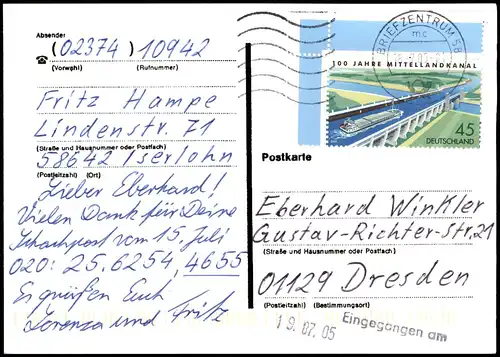 Absender
(02374) 10942
(Vorwahl) (Rufnummer)
Fritz Hampe
Lindenstr. 71
(Straße und Hausnummer oder Postfach)
58642 Iserlohn
(Postleitzahl) (Ort)
Lieber Eberhard!
Vielen Dank für Deine
Schachpost vom 15. Juli
020: 25.6254, 4655
Es grüßen Euch
Lorenza und Fritz
BRIEFZENTRUM 58
mc
100 JAHRE MITTELLANDKANAL
45
DEUTSCHLAND
Postkarte
Eberhard Winkler
Gustav-Richter-Str. 21
(Straße und Hausnummer oder Postfach)
01129 Dresden
(Postleitzahl) (Bestimmungsort)
Eingegangen am
19. 07. 05